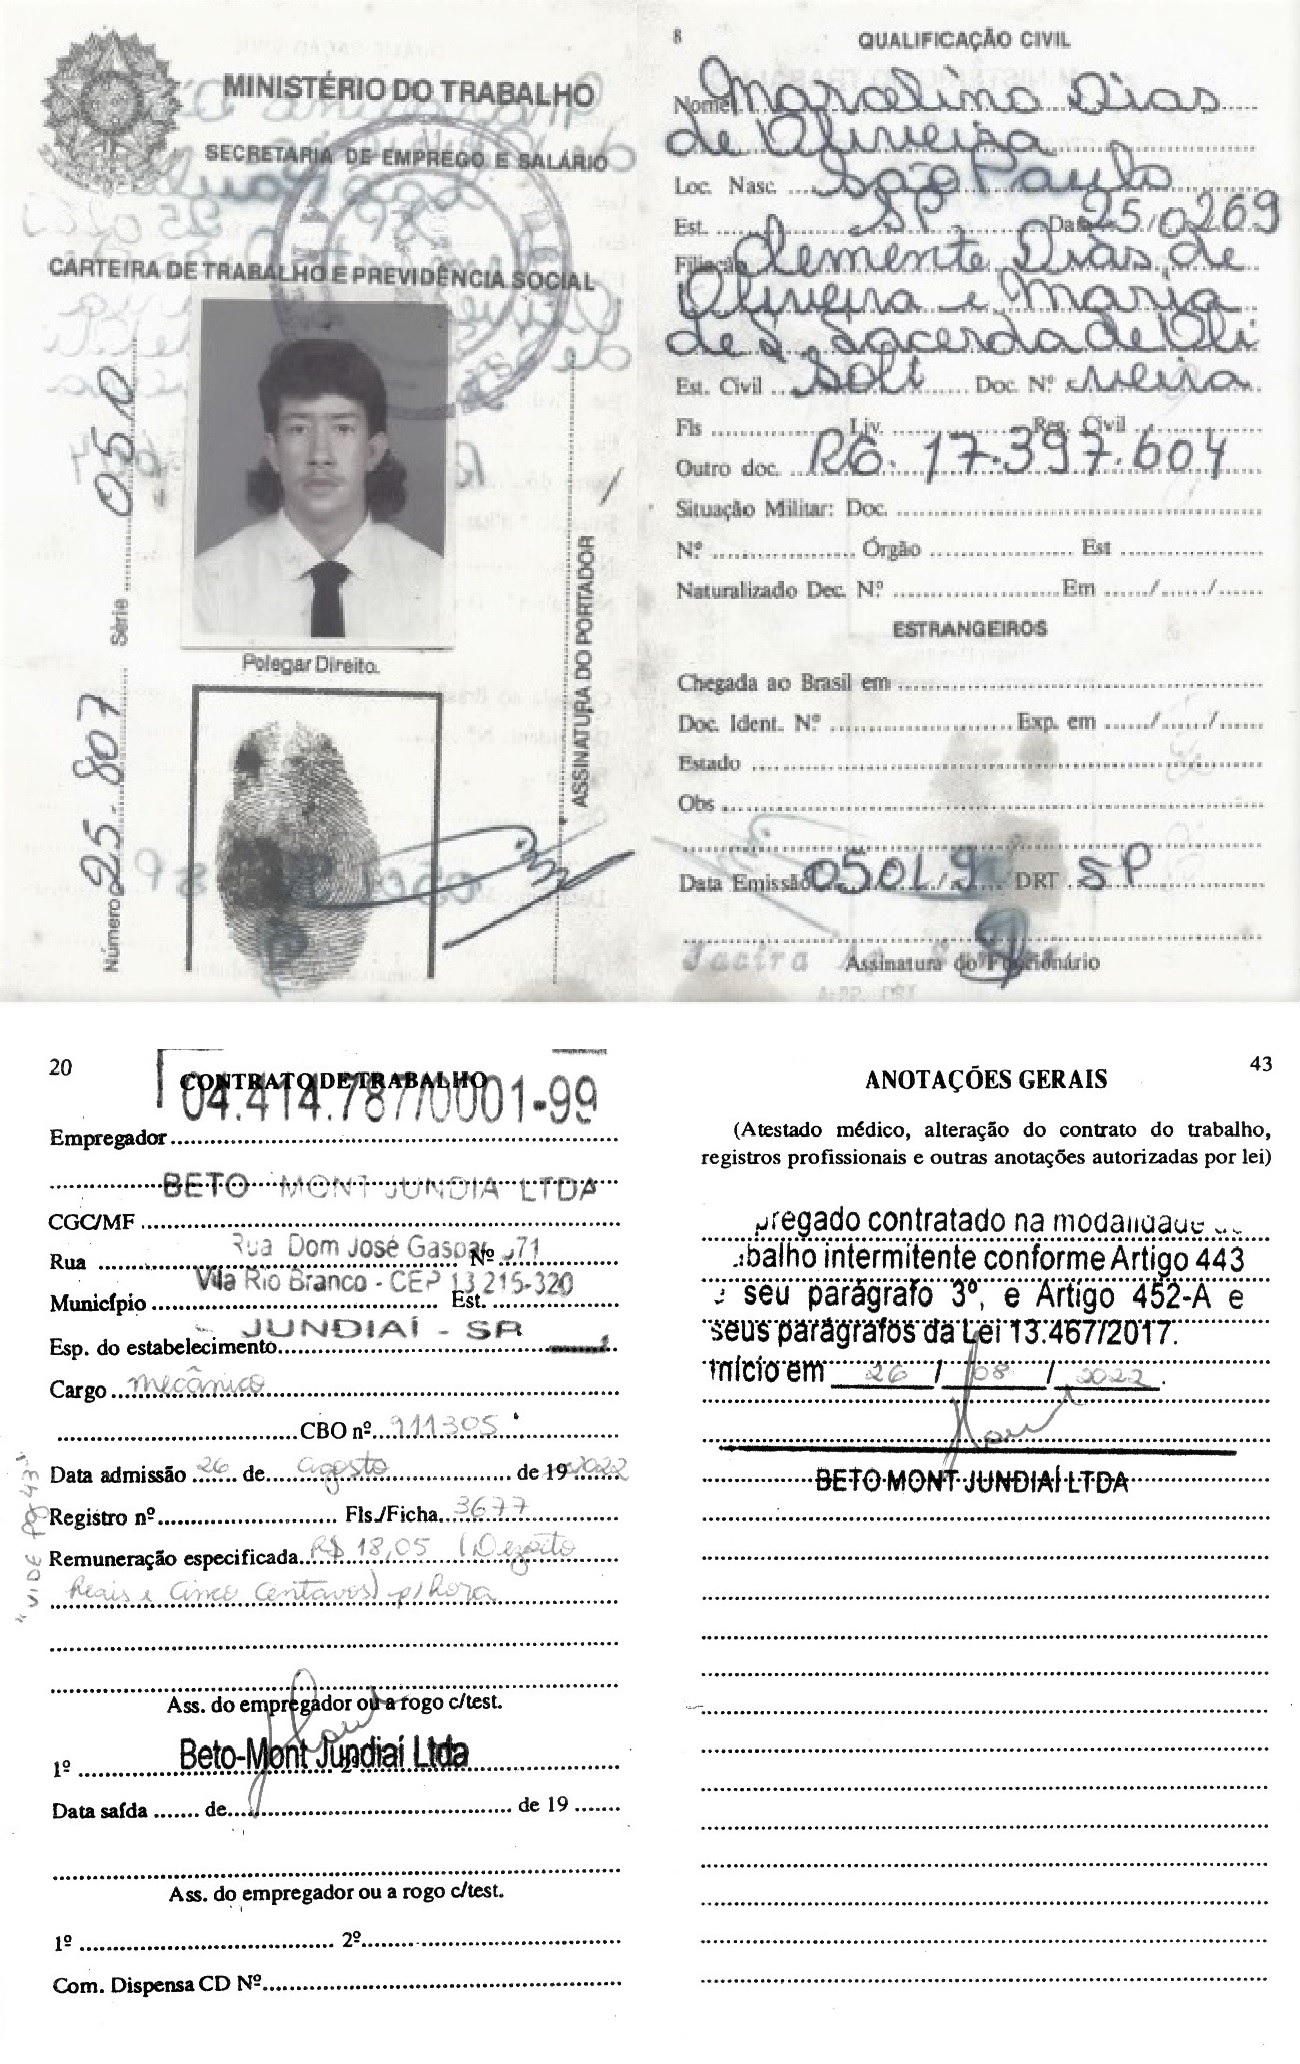 MINISTÉRIO DO TRABALHO
SECRETARIA DE EMPREGO E SALÁRIO
CARTEIRA DE TRABALHO E PREVIDÊNCIA SOCIAL
Número 25.807 Série 051
Polegar Direito.
ASSINATURA DO PORTADOR
8
QUALIFICAÇÃO CIVIL
Nome Marcelino Dias
de Oliveira
Loc. Nasc. São Paulo
Est. SP Data 25/0269
Filiação Clemente Dias de
Oliveira e Maria
de S. Lacerda de Oli
Est. Civil Solt Doc. Nº veira
Fls Liv. Reg. Civil
Outro doc. RG. 17.397.604
Situação Militar: Doc.
Nº Órgão Est
Naturalizado Dec. Nº Em / /
ESTRANGEIROS
Chegada ao Brasil em
Doc. Ident. Nº Exp. em / /
Estado
Obs
Data Emissão 0501 9 DRT SP
Jacira
Assinatura do Funcionário
20
CONTRATO DE TRABALHO
04.414.787/0001-99
Empregador
BETO MONT JUNDIA LTDA
CGC/MF
Rua Dom José Gaspar Nº 71
Vila Rio Branco - CEP 13.215-320
Município Est.
JUNDIAÍ - SP
Esp. do estabelecimento
Cargo mecânico
CBO nº 911305
Data admissão 26 de agosto de 19 2022
Registro nº Fls./Ficha 3677
Remuneração especificada R$ 18,05 (Dezoito
Reais e Cinco Centavos) p/hora
"VIDE PG 43"
Ass. do empregador ou a rogo c/test.
Beto-Mont Jundiaí Ltda
1º 2º
Data saída de de 19
Ass. do empregador ou a rogo c/test.
1º 2º
Com. Dispensa CD Nº
43
ANOTAÇÕES GERAIS
(Atestado médico, alteração do contrato do trabalho,
registros profissionais e outras anotações autorizadas por lei)
pregado contratado na modalidade
balho intermitente conforme Artigo 443
e seu parágrafo 3º, e Artigo 452-A e
seus parágrafos da Lei 13.467/2017.
Início em 26 / 08 / 2022.
BETO MONT JUNDIAÍ LTDA